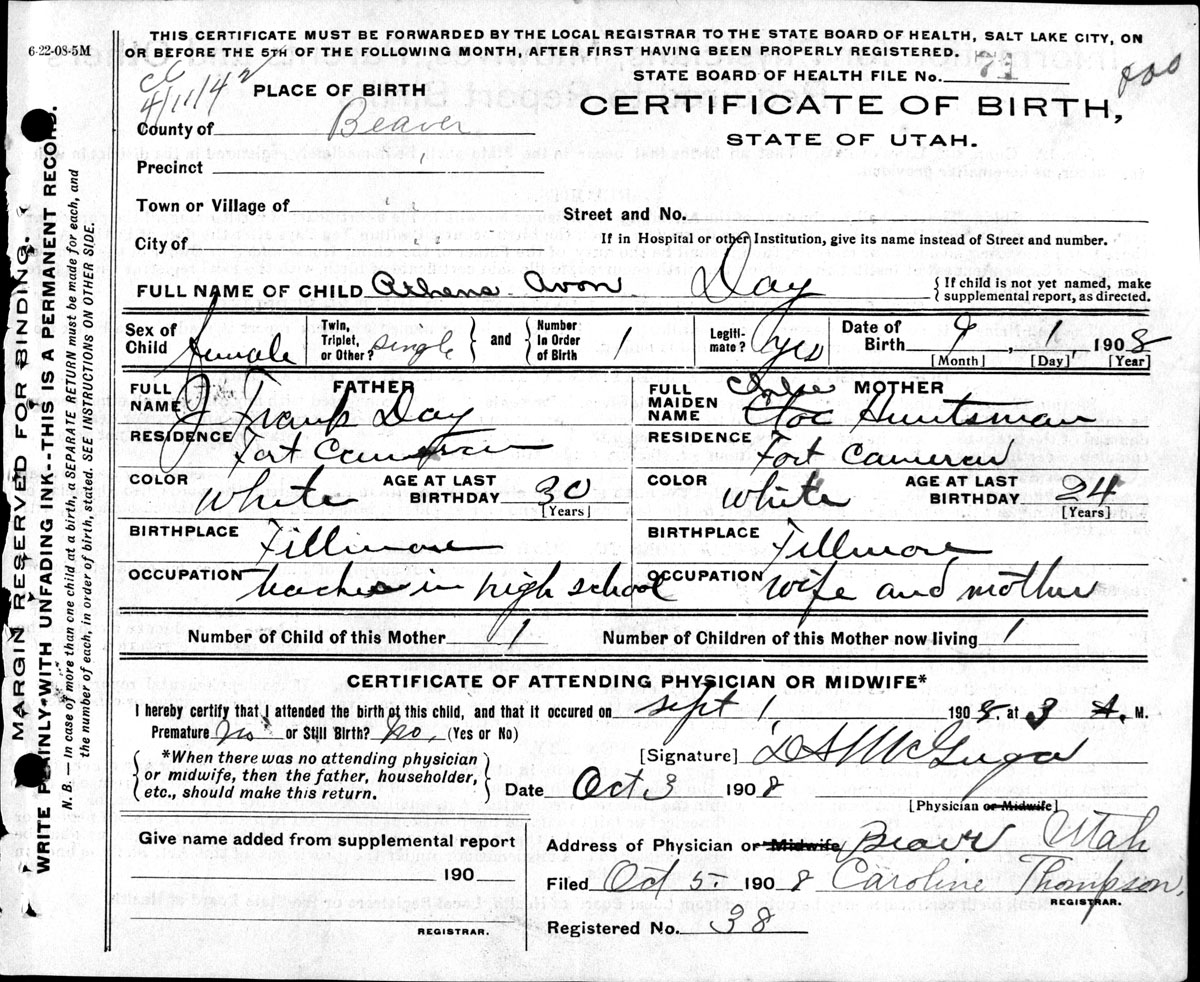 6-22-08-5M
THIS CERTIFICATE MUST BE FORWARDED BY THE LOCAL REGISTRAR TO THE STATE BOARD OF HEALTH, SALT LAKE CITY, ON
OR BEFORE THE 5TH OF THE FOLLOWING MONTH, AFTER FIRST HAVING BEEN PROPERLY REGISTERED.
STATE BOARD OF HEALTH FILE No. 71
4/11/42
PLACE OF BIRTH
CERTIFICATE OF BIRTH,
STATE OF UTAH.
County of Beaver
Precinct
Town or Village of
Street and No.
City of
If in Hospital or other Institution, give its name instead of Street and number.
FULL NAME OF CHILD Athena Avon Day
{If child is not yet named, make supplemental report, as directed.
Sex of Child female
Twin, Triplet, or Other? single and Number in Order of Birth 1
Legitimate? yes
Date of Birth 9, 1, 1908
[Month] [Day] [Year]
FATHER
FULL NAME J. Frank Day
MOTHER
FULL MAIDEN NAME Huntsman
RESIDENCE Fort Cameron
RESIDENCE Fort Cameron
COLOR White AGE AT LAST BIRTHDAY 30 [Years]
COLOR White AGE AT LAST BIRTHDAY 24 [Years]
BIRTHPLACE Fillmore
BIRTHPLACE Fillmore
OCCUPATION teacher in high school
OCCUPATION wife and mother
Number of Child of this Mother 1 Number of Children of this Mother now living 1
CERTIFICATE OF ATTENDING PHYSICIAN OR MIDWIFE*
I hereby certify that I attended the birth of this child, and that it occured on Sept 1, 1908, at 3 A. M.
Premature No or Still Birth? No. (Yes or No)
{*When there was no attending physician or midwife, then the father, householder, etc., should make this return.}
[Signature]
Date Oct 3 1908
[Physician or Midwife]
Give name added from supplemental report
190
REGISTRAR.
Address of Physician or Midwife Beaver Utah
Filed Oct 5. 1908 Caroline Thompson,
REGISTRAR.
Registered No. 38
MARGIN RESERVED FOR BINDING.
WRITE PLAINLY WITH UNFADING INK--THIS IS A PERMANENT RECORD.
N. B. — In case of more than one child at a birth, a SEPARATE RETURN must be made for each, and
the number of each, in order of birth, stated. SEE INSTRUCTIONS ON OTHER SIDE.